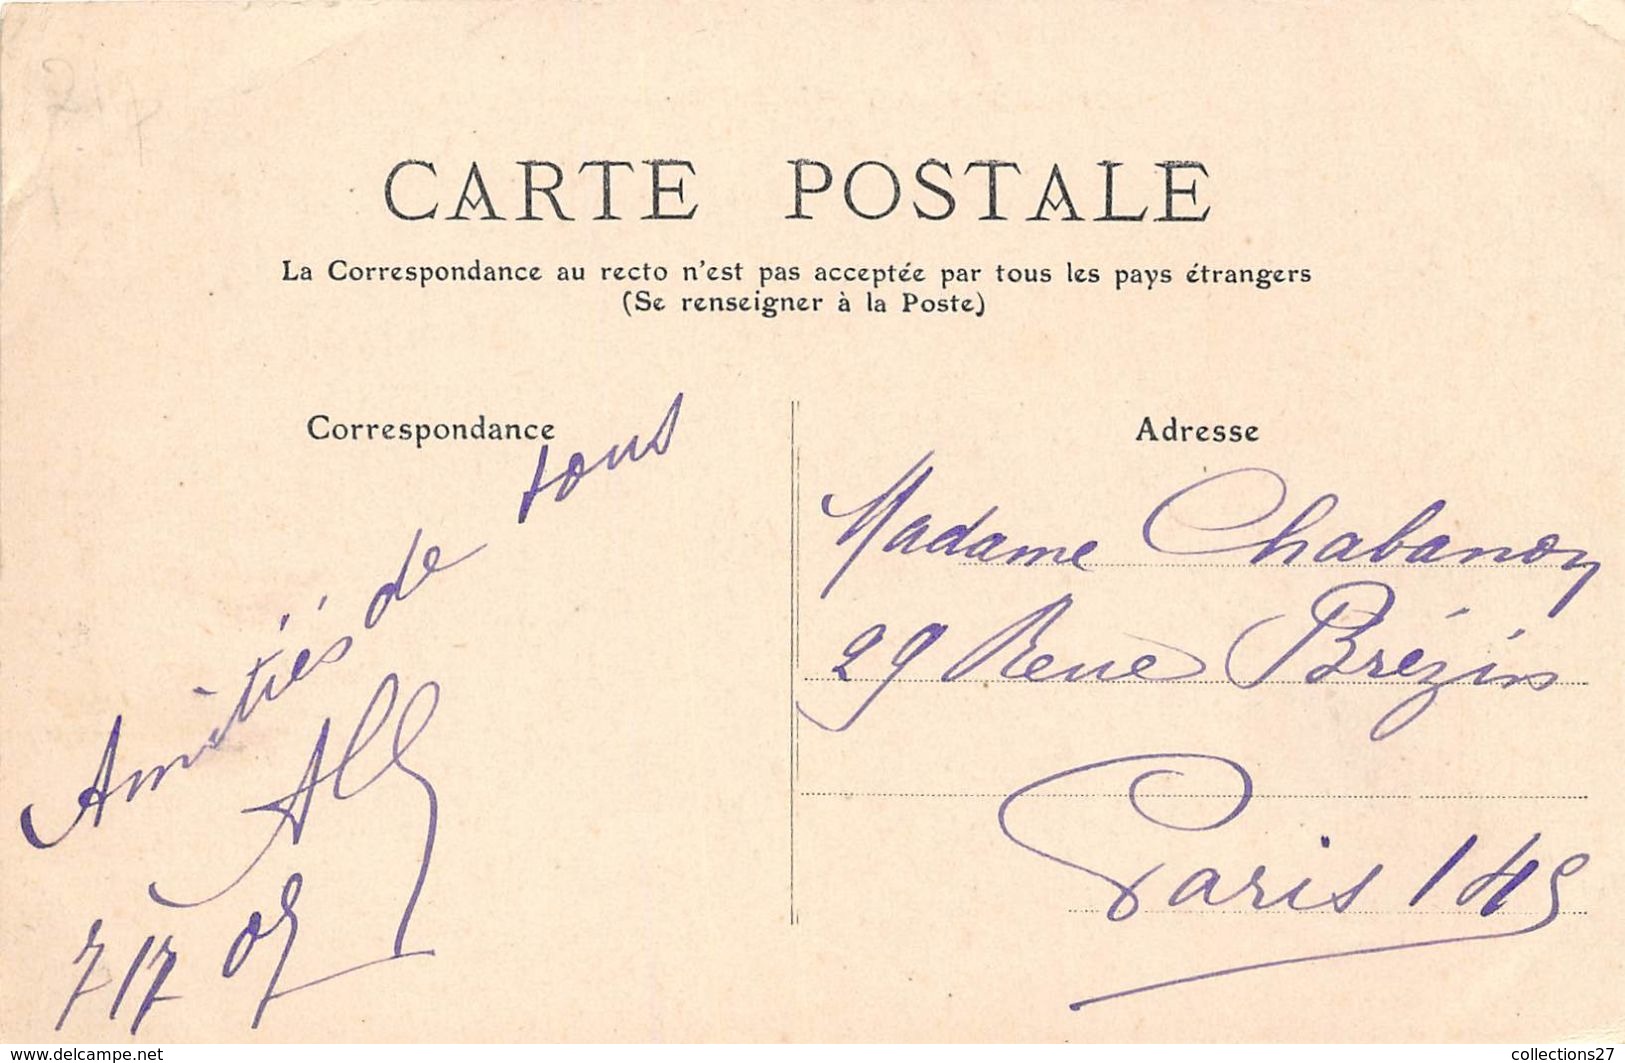 CARTE POSTALE
La Correspondance au recto n'est pas acceptée par tous les pays étrangers
(Se renseigner à la Poste)
Correspondance
Amitiés de tous
Adresse
Madame Chabanon
29 Rue Brézin
Paris 14e
www.delcampe.net
collections27